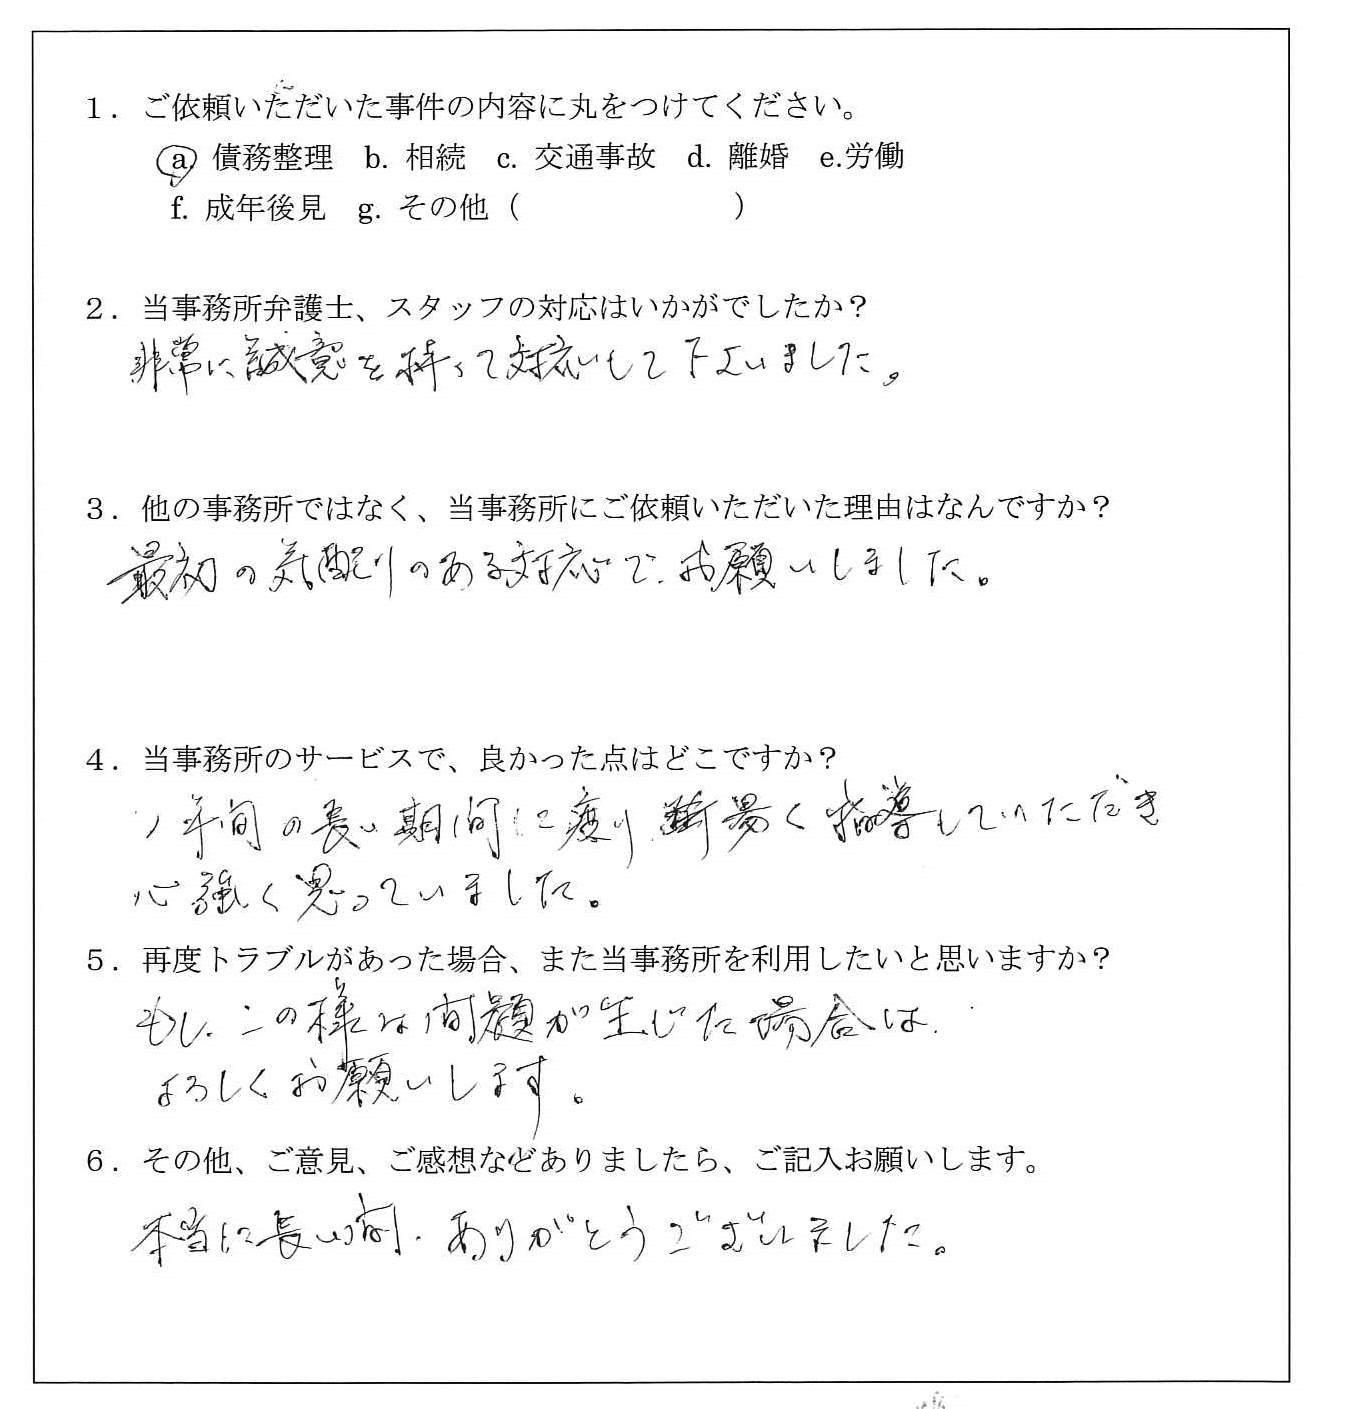 １．ご依頼いただいた事件の内容に丸をつけてください。
a. 債務整理 b. 相続 c. 交通事故 d. 離婚 e.労働
f. 成年後見 g. その他（ ）
２．当事務所弁護士、スタッフの対応はいかがでしたか？
非常に誠意を持って対応して下さいました。
３．他の事務所ではなく、当事務所にご依頼いただいた理由はなんですか？
最初の気配りのある対応で、お願いしました。
４．当事務所のサービスで、良かった点はどこですか？
年間の長い期間に渡り く指導していただき
心強く思っていました。
５．再度トラブルがあった場合、また当事務所を利用したいと思いますか？
もし、この様な問題が生じた場合は、
よろしくお願いします。
６．その他、ご意見、ご感想などありましたら、ご記入お願いします。
本当に長い間、ありがとうございました。